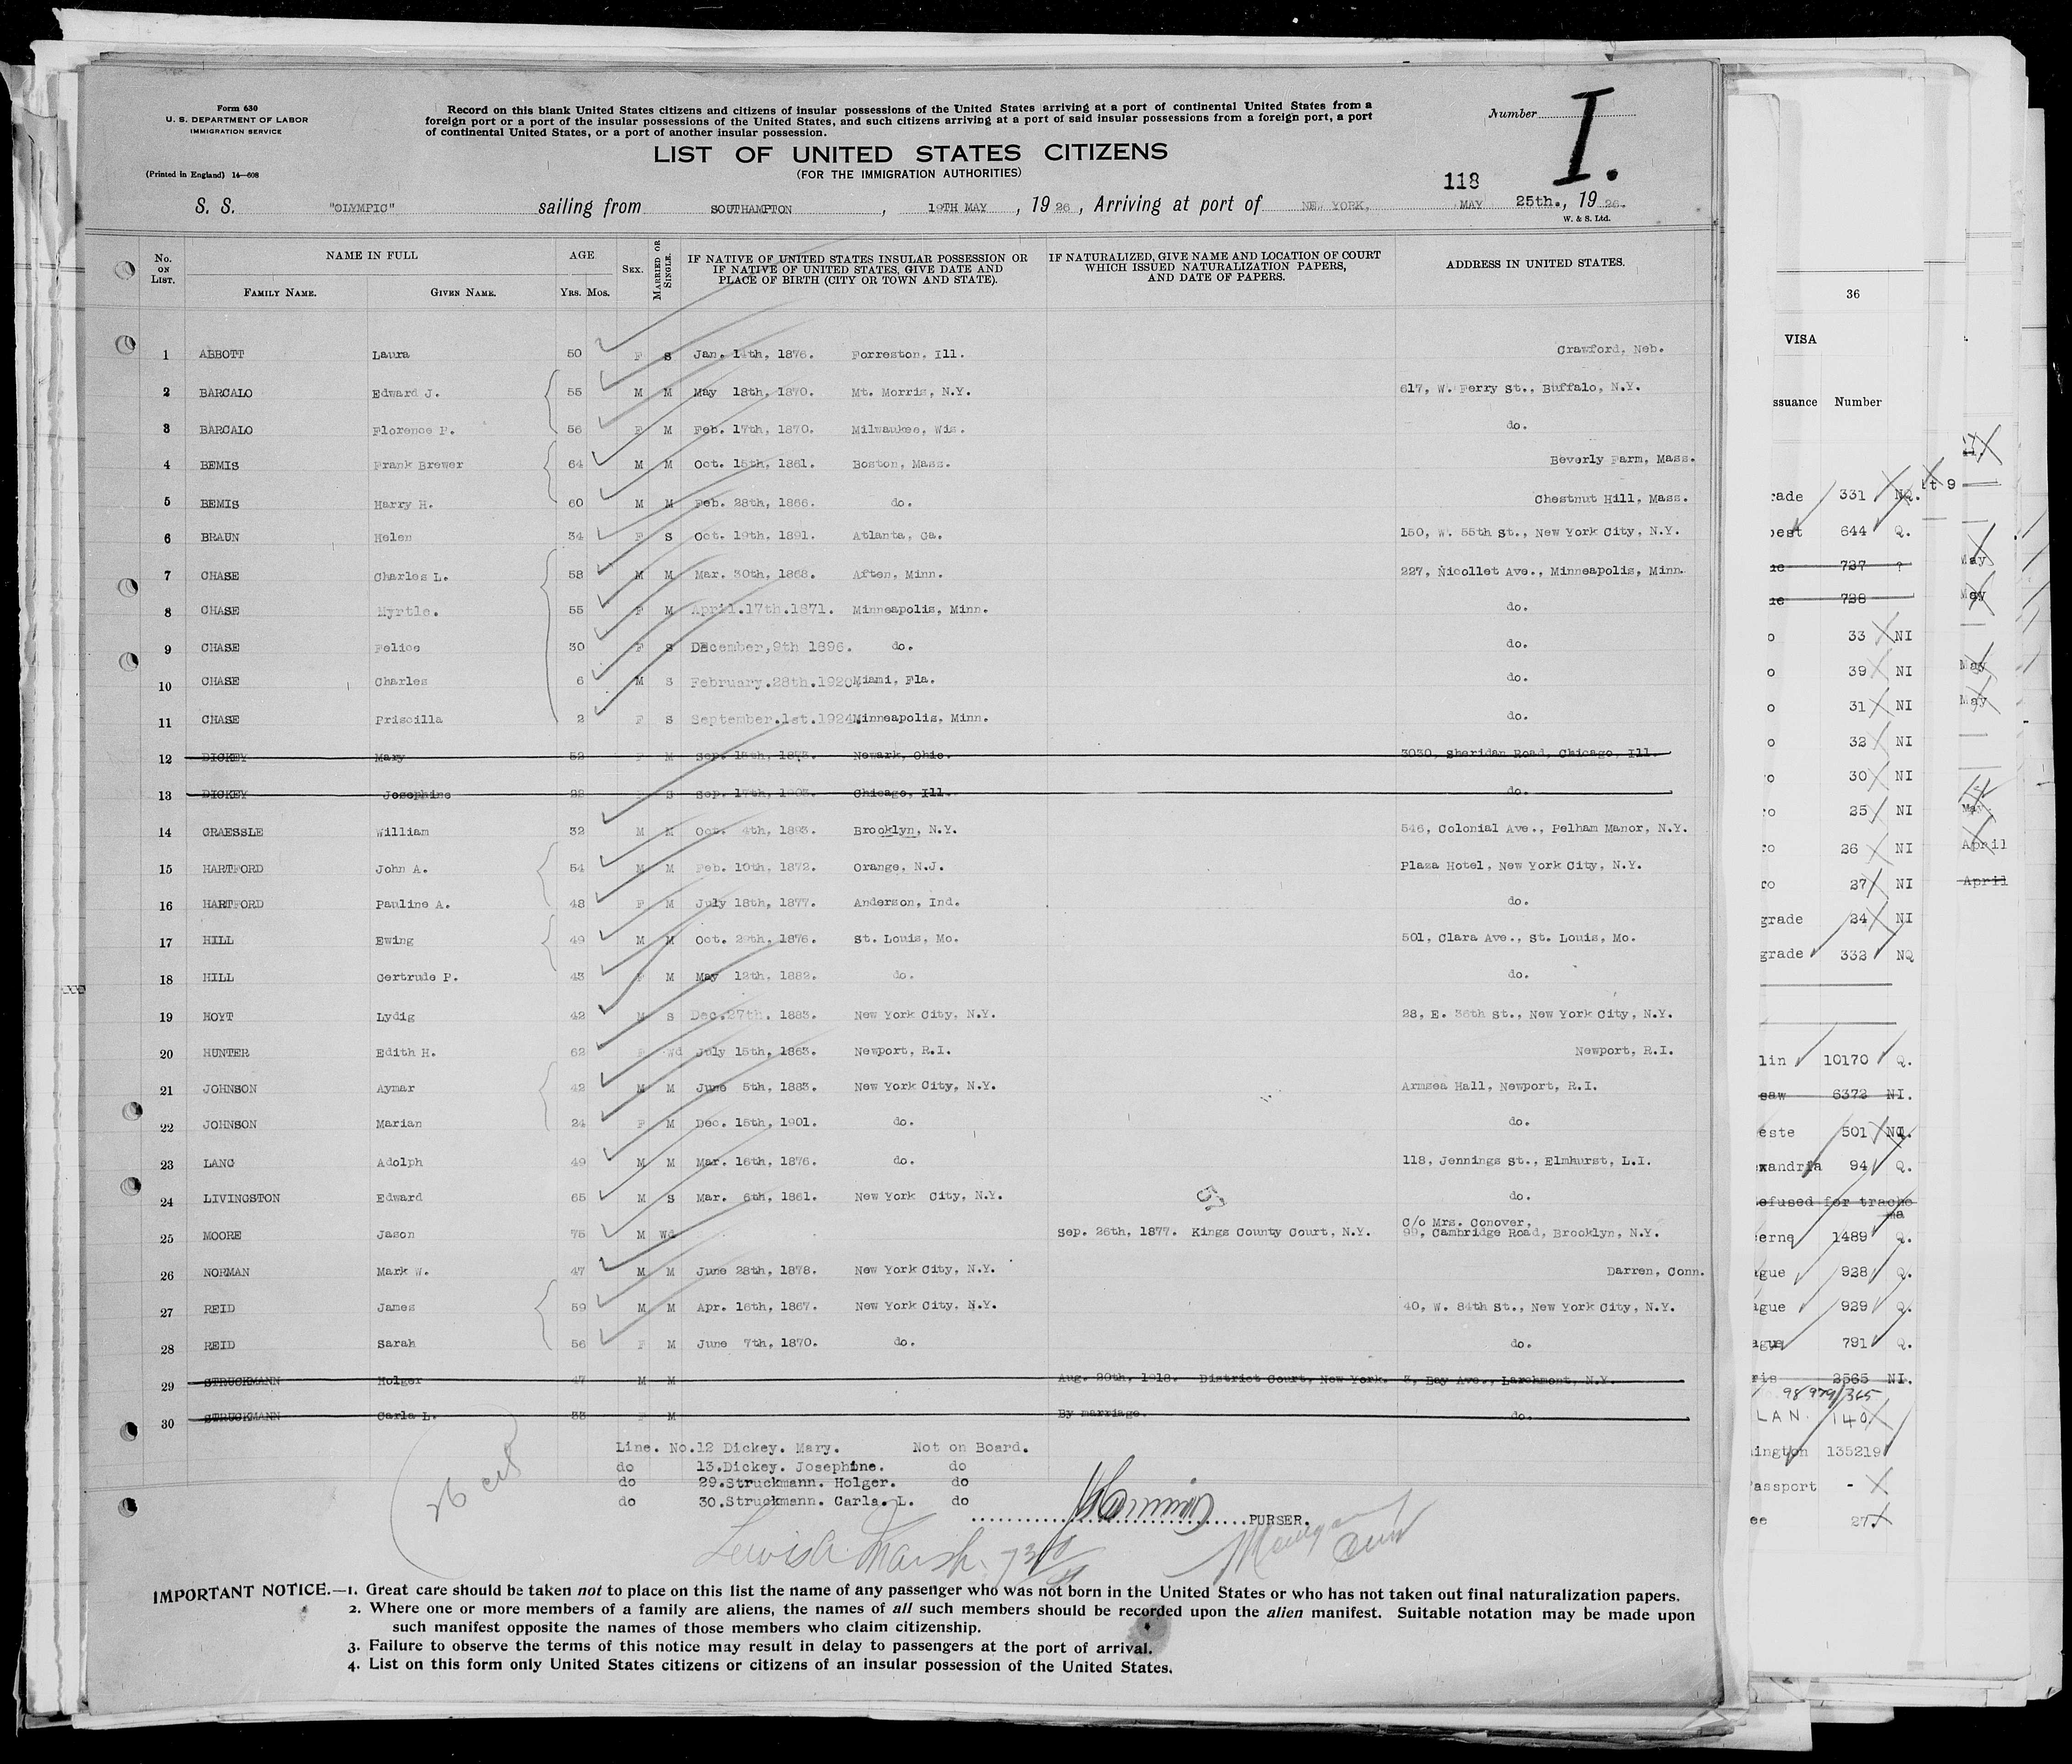 Form 630
U. S. DEPARTMENT OF LABOR
IMMIGRATION SERVICE
(Printed in England) 14—608
Record on this blank United States citizens and citizens of insular possessions of the United States arriving at a port of continental United States from a
foreign port or a port of the insular possessions of the United States, and such citizens arriving at a port of said insular possessions from a foreign port, a port
of continental United States, or a port of another insular possession.
Number I.
LIST OF UNITED STATES CITIZENS
(FOR THE IMMIGRATION AUTHORITIES)
118
S. S. "OLYMPIC" sailing from SOUTHAMPTON, 19TH MAY, 1926, Arriving at port of NEW YORK, MAY 25th., 1926.
W. & S. Ltd.
No. ON LIST. NAME IN FULL FAMILY NAME. GIVEN NAME. AGE YRS. MOS. SEX. MARRIED OR SINGLE. IF NATIVE OF UNITED STATES INSULAR POSSESSION OR IF NATIVE OF UNITED STATES, GIVE DATE AND PLACE OF BIRTH (CITY OR TOWN AND STATE). IF NATURALIZED, GIVE NAME AND LOCATION OF COURT WHICH ISSUED NATURALIZATION PAPERS, AND DATE OF PAPERS. ADDRESS IN UNITED STATES.
1 ABBOTT Laura 50 F S Jan. 14th, 1876. Forreston, Ill. Crawford, Neb.
2 BARCALO Edward J. 55 M M May 18th, 1870. Mt. Morris, N.Y. 617, W. Ferry St., Buffalo, N.Y.
3 BARCALO Florence P. 56 F M Feb. 17th, 1870. Milwaukee, Wis. do.
4 BEMIS Frank Brewer 64 M M Oct. 15th, 1861. Boston, Mass. Beverly Farm, Mass.
5 BEMIS Harry H. 60 M M Feb. 28th, 1866. do. Chestnut Hill, Mass.
6 BRAUN Helen 34 F S Oct. 19th, 1891. Atlanta, Ga. 150, W. 55th St., New York City, N.Y.
7 CHASE Charles L. 58 M M Mar. 30th, 1868. Aften, Minn. 227, Nicollet Ave., Minneapolis, Minn.
8 CHASE Myrtle. 55 F M April.17th.1871. Minneapolis, Minn. do.
9 CHASE Felice 30 F S December,9th 1896. do. do.
10 CHASE Charles 6 M S February.28th.1920 Miami, Fla. do.
11 CHASE Priscilla 2 F S September.1st.1924. Minneapolis, Minn. do.
12 DICKEY Mary 52 F M Sep. 15th, 1873. Newark, Ohio. 3030, Sheridan Road, Chicago, Ill.
13 DICKEY Josephine S Sep. 17th, 1903. Chicago, Ill. do.
14 GRAESSLE William 32 M M Oct. 4th, 1893. Brooklyn, N.Y. 546, Colonial Ave., Pelham Manor, N.Y.
15 HARTFORD John A. 54 M M Feb. 10th, 1872. Orange, N.J. Plaza Hotel, New York City, N.Y.
16 HARTFORD Pauline A. 48 F M July 18th, 1877. Anderson, Ind. do.
17 HILL Ewing 49 M M Oct. 29th, 1876. St. Louis, Mo. 501, Clara Ave., St. Louis, Mo.
18 HILL Gertrude P. 43 F M May 12th, 1882. do. do.
19 HOYT Lydig 42 M S Dec.27th. 1883. New York City, N.Y. 28, E. 36th St., New York City, N.Y.
20 HUNTER Edith H. 62 F Wd July 15th, 1863. Newport, R.I. Newport, R.I.
21 JOHNSON Aymar 42 M M June 5th, 1883. New York City, N.Y. Armsea Hall, Newport, R.I.
22 JOHNSON Marian 24 F M Dec. 15th, 1901. do. do.
23 LANG Adolph 49 M M Mar. 16th, 1876. do. 118, Jennings St., Elmhurst, L.I.
24 LIVINGSTON Edward 65 M S Mar. 6th, 1861. New York City, N.Y. do.
25 MOORE Jason 75 M Wd Sep. 26th, 1877. Kings County Court, N.Y. c/o Mrs. Conover, 99, Cambridge Road, Brooklyn, N.Y.
26 NORMAN Mark W. 47 M M June 28th, 1878. New York City, N.Y. Darren, Conn.
27 REID James 59 M M Apr. 16th, 1867. New York City, N.Y. 40, W. 84th St., New York City, N.Y.
28 REID Sarah 56 F M June 7th, 1870. do. do.
29 STRUCKMANN Holger 47 M M Aug. 20th, 1918. District Court, New York. 3, Bay Ave., Larchmont, N.Y.
30 STRUCKMANN Carla L. 33 F M By marriage. do.
Line. No.12 Dickey. Mary. Not on Board.
do 13.Dickey. Josephine. do
do 29.Struckmann. Holger. do
do 30.Struckmann. Carla. L. do
PURSER.
IMPORTANT NOTICE.—1. Great care should be taken not to place on this list the name of any passenger who was not born in the United States or who has not taken out final naturalization papers.
2. Where one or more members of a family are aliens, the names of all such members should be recorded upon the alien manifest. Suitable notation may be made upon
such manifest opposite the names of those members who claim citizenship.
3. Failure to observe the terms of this notice may result in delay to passengers at the port of arrival.
4. List on this form only United States citizens or citizens of an insular possession of the United States.
36
VISA
ssuance Number
rade 331 NQ.
pest 644 Q.
ue 727
ue 728
o 33 NI
o 39 NI
o 31 NI
o 32 NI
o 30 NI
ro 25 NI
ro 26 NI
ro 27 NI
grade 24 NI
grade 332 NQ
lin 10170 Q.
saw 6372 NI.
este 501 NQ.
xandria 94 Q.
efused for tracho
ma
erne 1489 Q.
gue 928 Q.
ague 929 Q.
ague 791 Q.
ris 2565 NI.
LAN. 140
ington 135219
assport -
ee 27
May
May
May
May
May
April
April